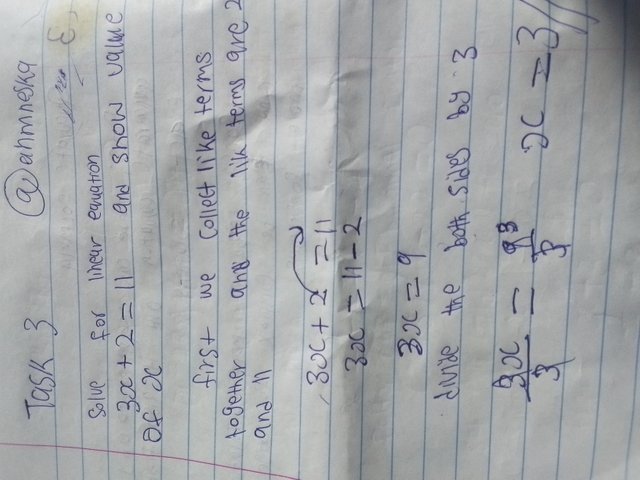 Task 3 @ahmneska
solve for linear equation
3x + 2 = 11 and show value
of x
first we collect like terms
together and the lik terms are 2
and 11
3x + 2 = 11
3x = 11 - 2
3x = 9
divide the both sides by 3
3x/3 = 9/3 x = 3